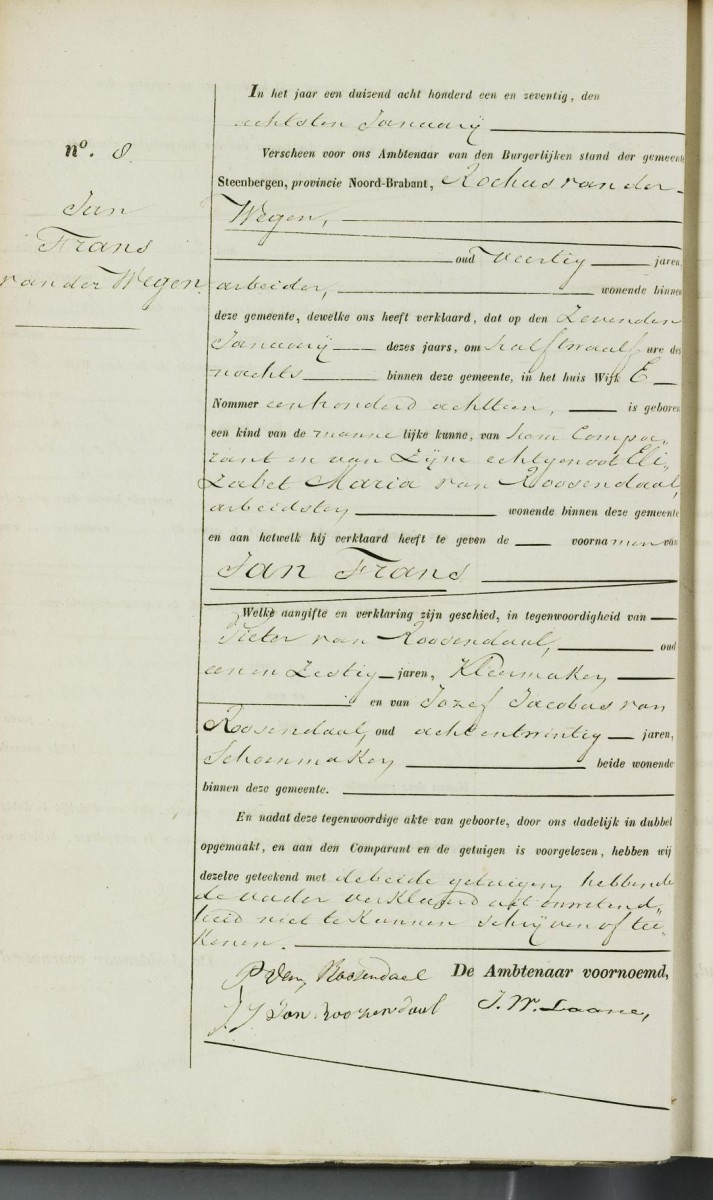 n.º 8.
Jan
Frans
van der Wegen.
In het jaar een duizend acht honderd een en zeventig, den
achtsten Januarij
Verscheen voor ons Ambtenaar van den Burgerlijken stand der gemeente
Steenbergen, provincie Noord-Brabant, Rochus van der
Wegen,
oud veertig jaren,
arbeider, wonende binnen
deze gemeente, dewelke ons heeft verklaard, dat op den Zevenden
Januarij dezes jaars, om half twaalf ure des
nachts binnen deze gemeente, in het huis Wijk E
Nommer eenhonderd achttien, is geboren
een kind van de mannelijke kunne, van hem Compa„
rant en van Zijne echtgenoot Eli„
zabet Maria van Roosendaal,
arbeidster, wonende binnen deze gemeente
en aan hetwelk hij verklaard heeft te geven de voornamen van
Jan Frans
Welke aangifte en verklaring zijn geschied, in tegenwoordigheid van
Pieter van Roosendaal, oud
een en Zestig jaren, Kleermaker,
en van Jozef Jacobus van
Roosendaal, oud achtentwintig jaren,
Schoenmaker, beide wonende
binnen deze gemeente.
En nadat deze tegenwoordige akte van geboorte, door ons dadelijk in dubbel
opgemaakt, en aan den Comparant en de getuigen is voorgelezen, hebben wij
dezelve geteekend met de beide getuigen, hebbende
de vader verklaard uit onwetend„
heid niet te Kunnen schrijven of tee„
kenen.
P Van Roosendael De Ambtenaar voornoemd,
J J Van Roozendaal J. W. Laane,